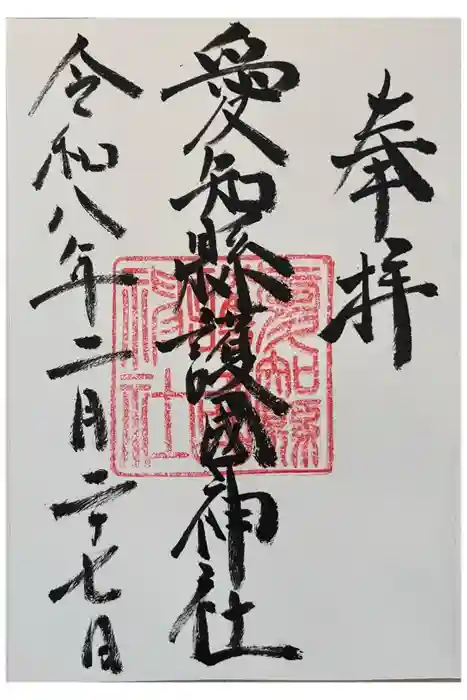 奉拝
愛知縣護國神社
令和八年二月二十七日
愛知縣護國神社